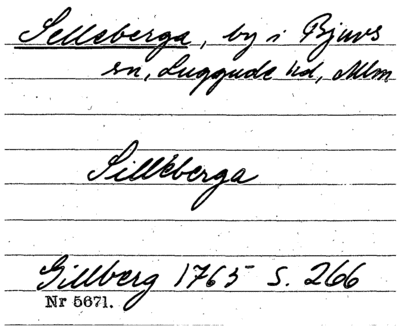 Selleberga, by i Bjuvs
sn, Luggude hd, Mlm
Silleberga
Gillberg 1765 S. 266
Nr 5671.